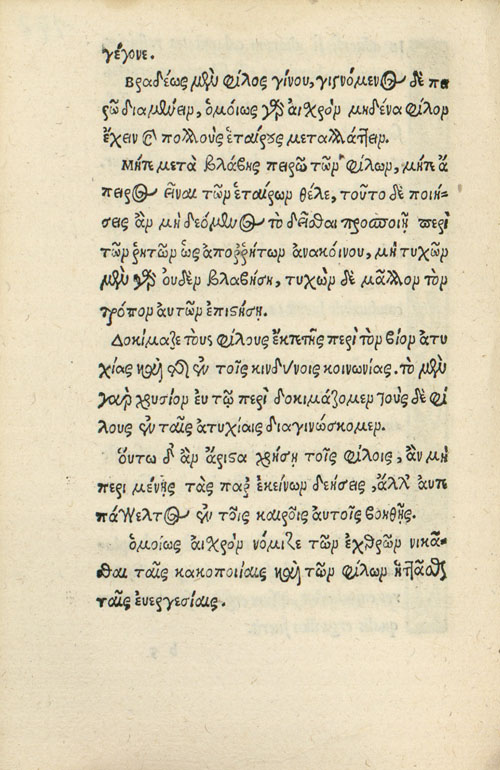 γέγονε.
Βραδέως μὲν φίλος γίνου, γιγνόμενος δὲ πει
ρῶ διαμένειν, ὁμοίως γὰρ αἰσχρὸν μηδένα φίλον
ἔχειν καὶ πολλοὺς ἑταίρους μεταλλάττειν.
Μήτε μετὰ βλάβης πειρῶ τῶν φίλων, μήτε ἄ
πειρος εἶναι τῶν ἑταίρων θέλε, τοῦτο δὲ ποιή-
σεις ἂν μὴ δεόμενος τὸ δεῖσθαι προσποιῇ περὶ
τῶν ῥητῶν ὡς ἀπορρήτων ἀνακοίνου, μὴ τυχὼν
μὲν γὰρ οὐδὲν βλαβήση, τυχὼν δὲ μᾶλλον τὸν
τρόπον αὐτῶν ἐπιστήση.
Δοκίμαζε τοὺς φίλους ἔκ τε τῆς περὶ τὸν βίον ἀτυ
χίας καὶ τῆς ἐν τοῖς κινδύνοις κοινωνίας. τὸ μὲν
γὰρ χρυσίον ἐν τῷ πυρὶ δοκιμάζομεν τοὺς δὲ φί
λους ἐν ταῖς ἀτυχίαις διαγινώσκομεν.
Οὕτω δ' ἂν ἄριστα χρήση τοῖς φίλοις, ἂν μὴ
περιμένῃς τὰς παρ' ἐκείνων δεήσεις, ἀλλ' αὐτε
πάγγελτος ἐν τοῖς καιροῖς αὐτοῖς βοηθῇς.
ὁμοίως αἰσχρὸν νόμιζε τῶν ἐχθρῶν νικᾶ-
σθαι ταῖς κακοποιίαις καὶ τῶν φίλων ἡττᾶσθαι
ταῖς ἐνεργεσίαις.